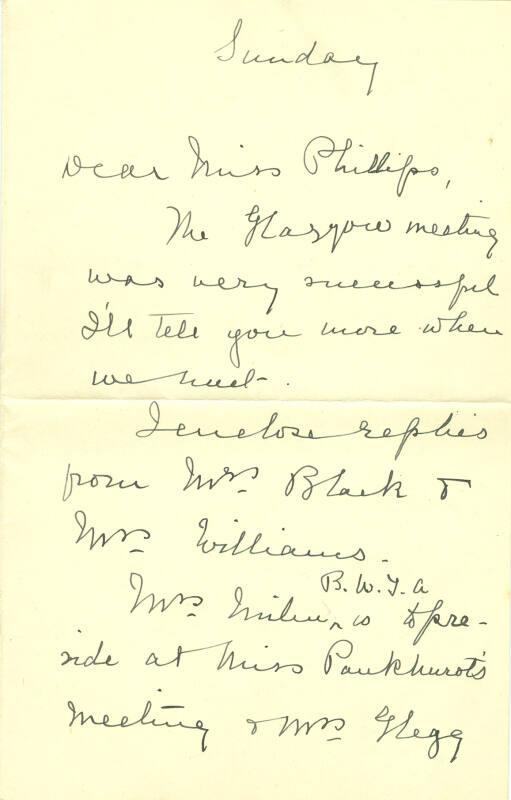 Sunday
Dear Miss Phillips,
The Glasgow meeting
was very successful
I'll tell you more when
we meet.
I enclose replies
from Mrs. Black &
Mrs. Williams.
B.W.T.A
Mrs. Milne ^ is to pre-
side at Miss Pankhurst's
meeting & Mrs. Glegg